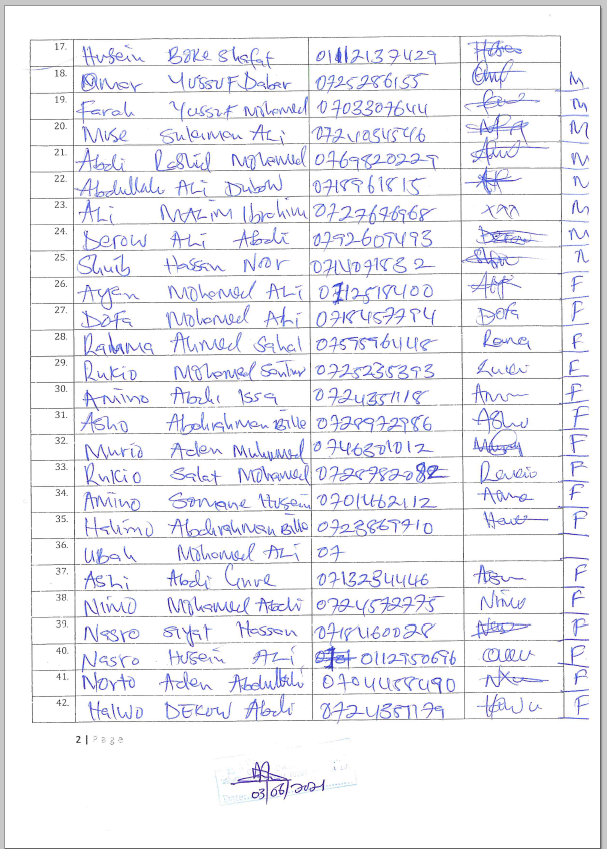 17. Husein Bake Shafat 01112137429
18. Omar Yussuf Dabar 0725286155 M
19. Farah Yussuf Mohamed 0703307644 M
20. Muse Suleiman ALi 0724034546 M
21. Abdi Rashid Mohamed 0769820229 M
22. Abdullahi ALi Dubow 0718961815 M
23. ALi MALIM Ibrahim 0727676968 M
24. Derow ALi Abdi 0792609493 M
25. Shuib Hassan Noor 0714071832
26. Ayan Mohamed ALi 0712518400 F
27. DOFA Mohamed ALi 0718457794 Dofa F
28. Rahma Ahmed Sahal 0759596448 F
29. Rukio Mohamed 0725235393 F
30. Amino Abdi Issa 0724351118 F
31. Asho Abdirahman Bille 0728972986 Asho F
32. Murio Aden Muhumed 0746301012 F
33. Rukio Salat Mohamed 0728782082 F
34. Amino Somane Husein 0701462112 F
35. Halimo Abdirahman Bille 0723869910 F
36. Ubah Mohamed ALi 07
37. Ashi Abdi 0713234446 F
38. Nimo Mohamed Abdi 0724572775 Nimo F
39. Nasro Siyat Hassan 0718460028 F
40. Nasro Husein ALi 0112950696 F
41. Norto Aden Abdullahi 0704458490 F
42. Halwo DEKOW Abdi 0724351179 F
2 | Page
03/06/2021